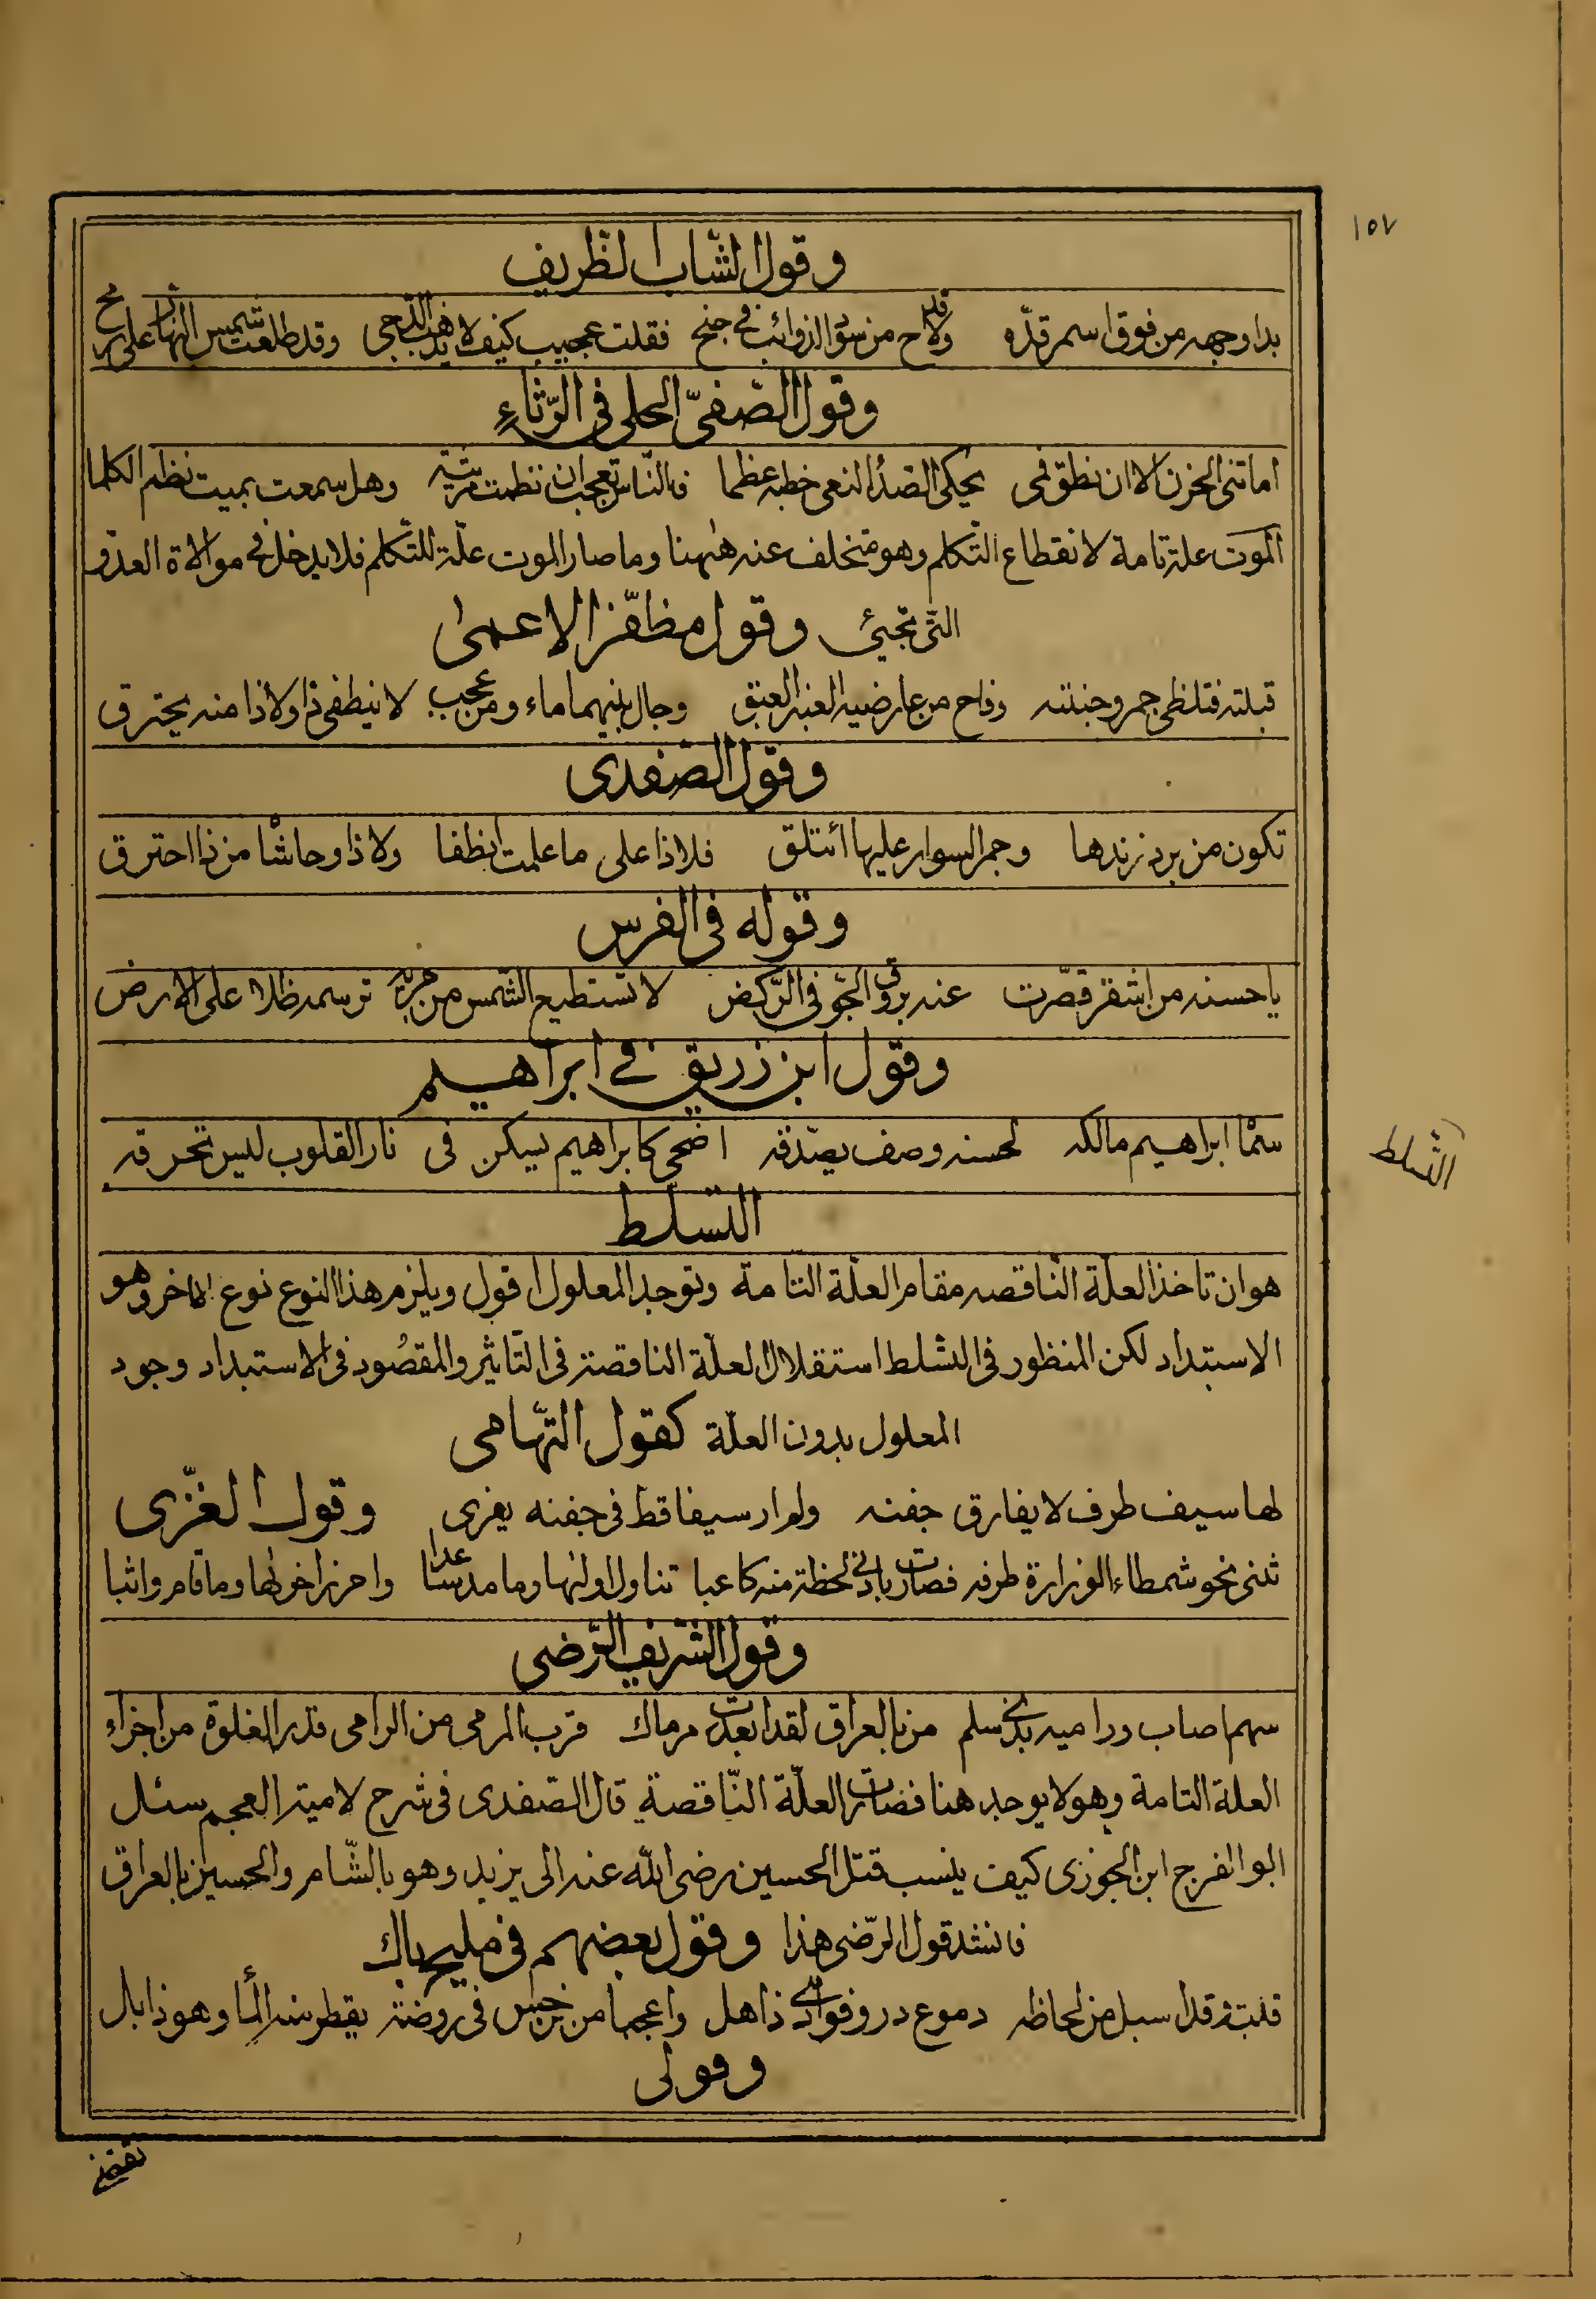 ١٥٧
وقول الشّاب الظّريف
بدا وجهه من فوق اسمر قدّه وقد لاح من سود الذوائب في جنح فقلت عجيب كيف لا يذهب الدّجى وقد طلعت شمس النّهار على رمح
وقول الصّفيّ الحلي في الرّثاءِ
اماتني الحزن الا ان نطق فمي يحكي الصّدا لنعي خطبه عظما فالنّاس تعجب ان نظمت مرثيته وهل سمعت بميت نظم الكلما
الموت علة تامة لانقطاع التّكلم وهو متخلف عنه هٰهنا وما صار الموت علّة للتّكلم فلا يدخل في موالاة العدّو
التّي تجيئ وقول مظفّر الاعمىٰ
قبلته فتلظى جمر وجنتته وفاح من عارضيه العنبر العبق وجال بينهما ماء ومن عجب لا ينطفي ذا ولا ذا منه يحترق
وقول الصّفدى
تكون من برد زندها وجمر السوار عليها ائتلق فلا ذا على ما علمت انطفا ولا ذا وحاشا من ذا احترق
وقوله في الفرس
يا حسنه من اشقر قصّرت عنه بروق الجّو في الرّكض لا تستطيع الشّمس من جريه ترسمه ظلا على الارض
وقول ابن زريق في ابراهيم
سمّا ابراهيم مالكه لحسنه وصف يصدّقه اضحى كابراهيم يسكن فى نار القلوب ليس تحرقه
التّسلط
التّسلّط
هو ان تاخذ العلّة النّاقصه مقام العلّة التّامة وتوجد المعلول اقول ويلزم هذا النوع نوع الآخر وهو
الاستبداد لكن المنظور في التسلط استقلال العلّة الناقصة في التّاثير والمقصُود في الاستبداد وجود
المعلول بدون العلّة كقول التّهامى
لها سيف طرف لا يفارق جفنه ولم ار سيفا قط في جفنه يفرى وقول الغزّى
ثنى نحو شمطاء الوزارة طرفه فصارت بادنى لحظة منه كاعبا تناول اولٰها وما مد ساعدا واحرز اخرٰها وما قام واثبا
وقول الشّريف الرّضى
سهم اصاب وراميه بذي سلم من بالعراق لقد ابعدت مرماك قرب المرمي من الرامى قدر الغلوة من اجزاء
العلة التامة وهو لا يوجد هنا فصارت العلّة النّاقصة قال الصّفدى فى شرح لامية العجم سئل
ابو الفرج ابن الجوزى كيف ينسب قتل الحسين رضى اللّه عنه الى يزيد وهو بالشّام والحسين بالعراق
فانشد قول الرّضى هذا وقول بعضهم في مليح باك
قلت وقد اسبل من لحاظه دموع در وفوادي ذاهل واعجبا من نرجس فى روضة يقطر منه الماء وهو ذابل
وقولى